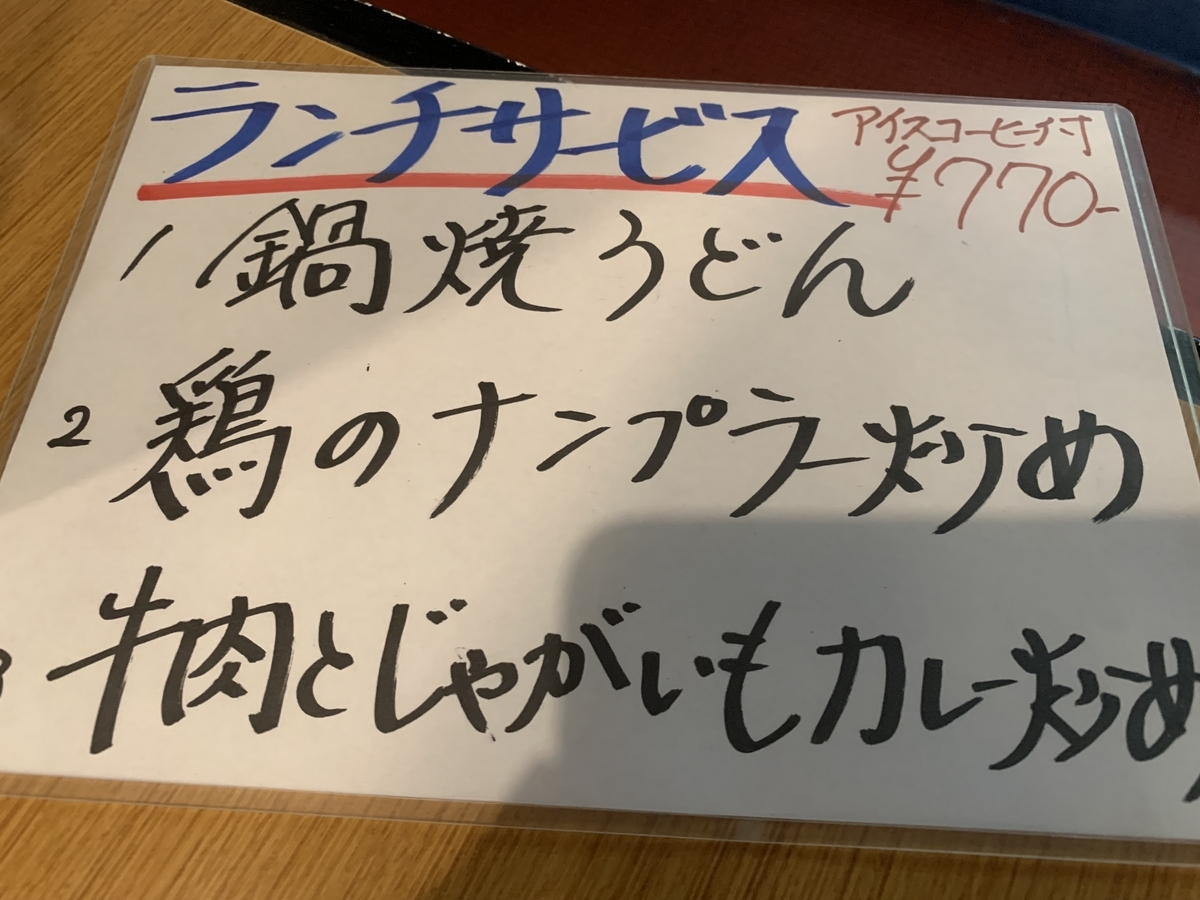 ランチサービス
アイスコーヒー付
¥770-
1 鍋焼うどん
2 鶏のナンプラー炒め
3 牛肉とじゃがいもカレー炒め